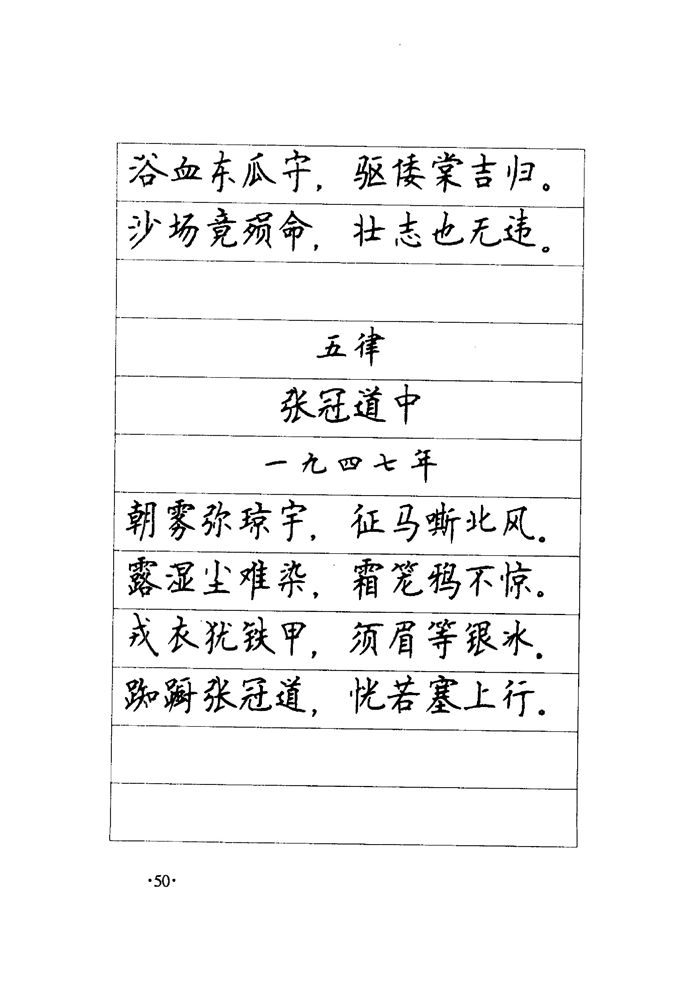 浴血东瓜守，驱倭棠吉归。
沙场竟殒命，壮志也无违。
五律
张冠道中
一九四七年
朝雾弥琼宇，征马嘶北风。
露湿尘难染，霜笼鸦不惊。
戎衣犹铁甲，须眉等银冰。
踟蹰张冠道，恍若塞上行。
·50·